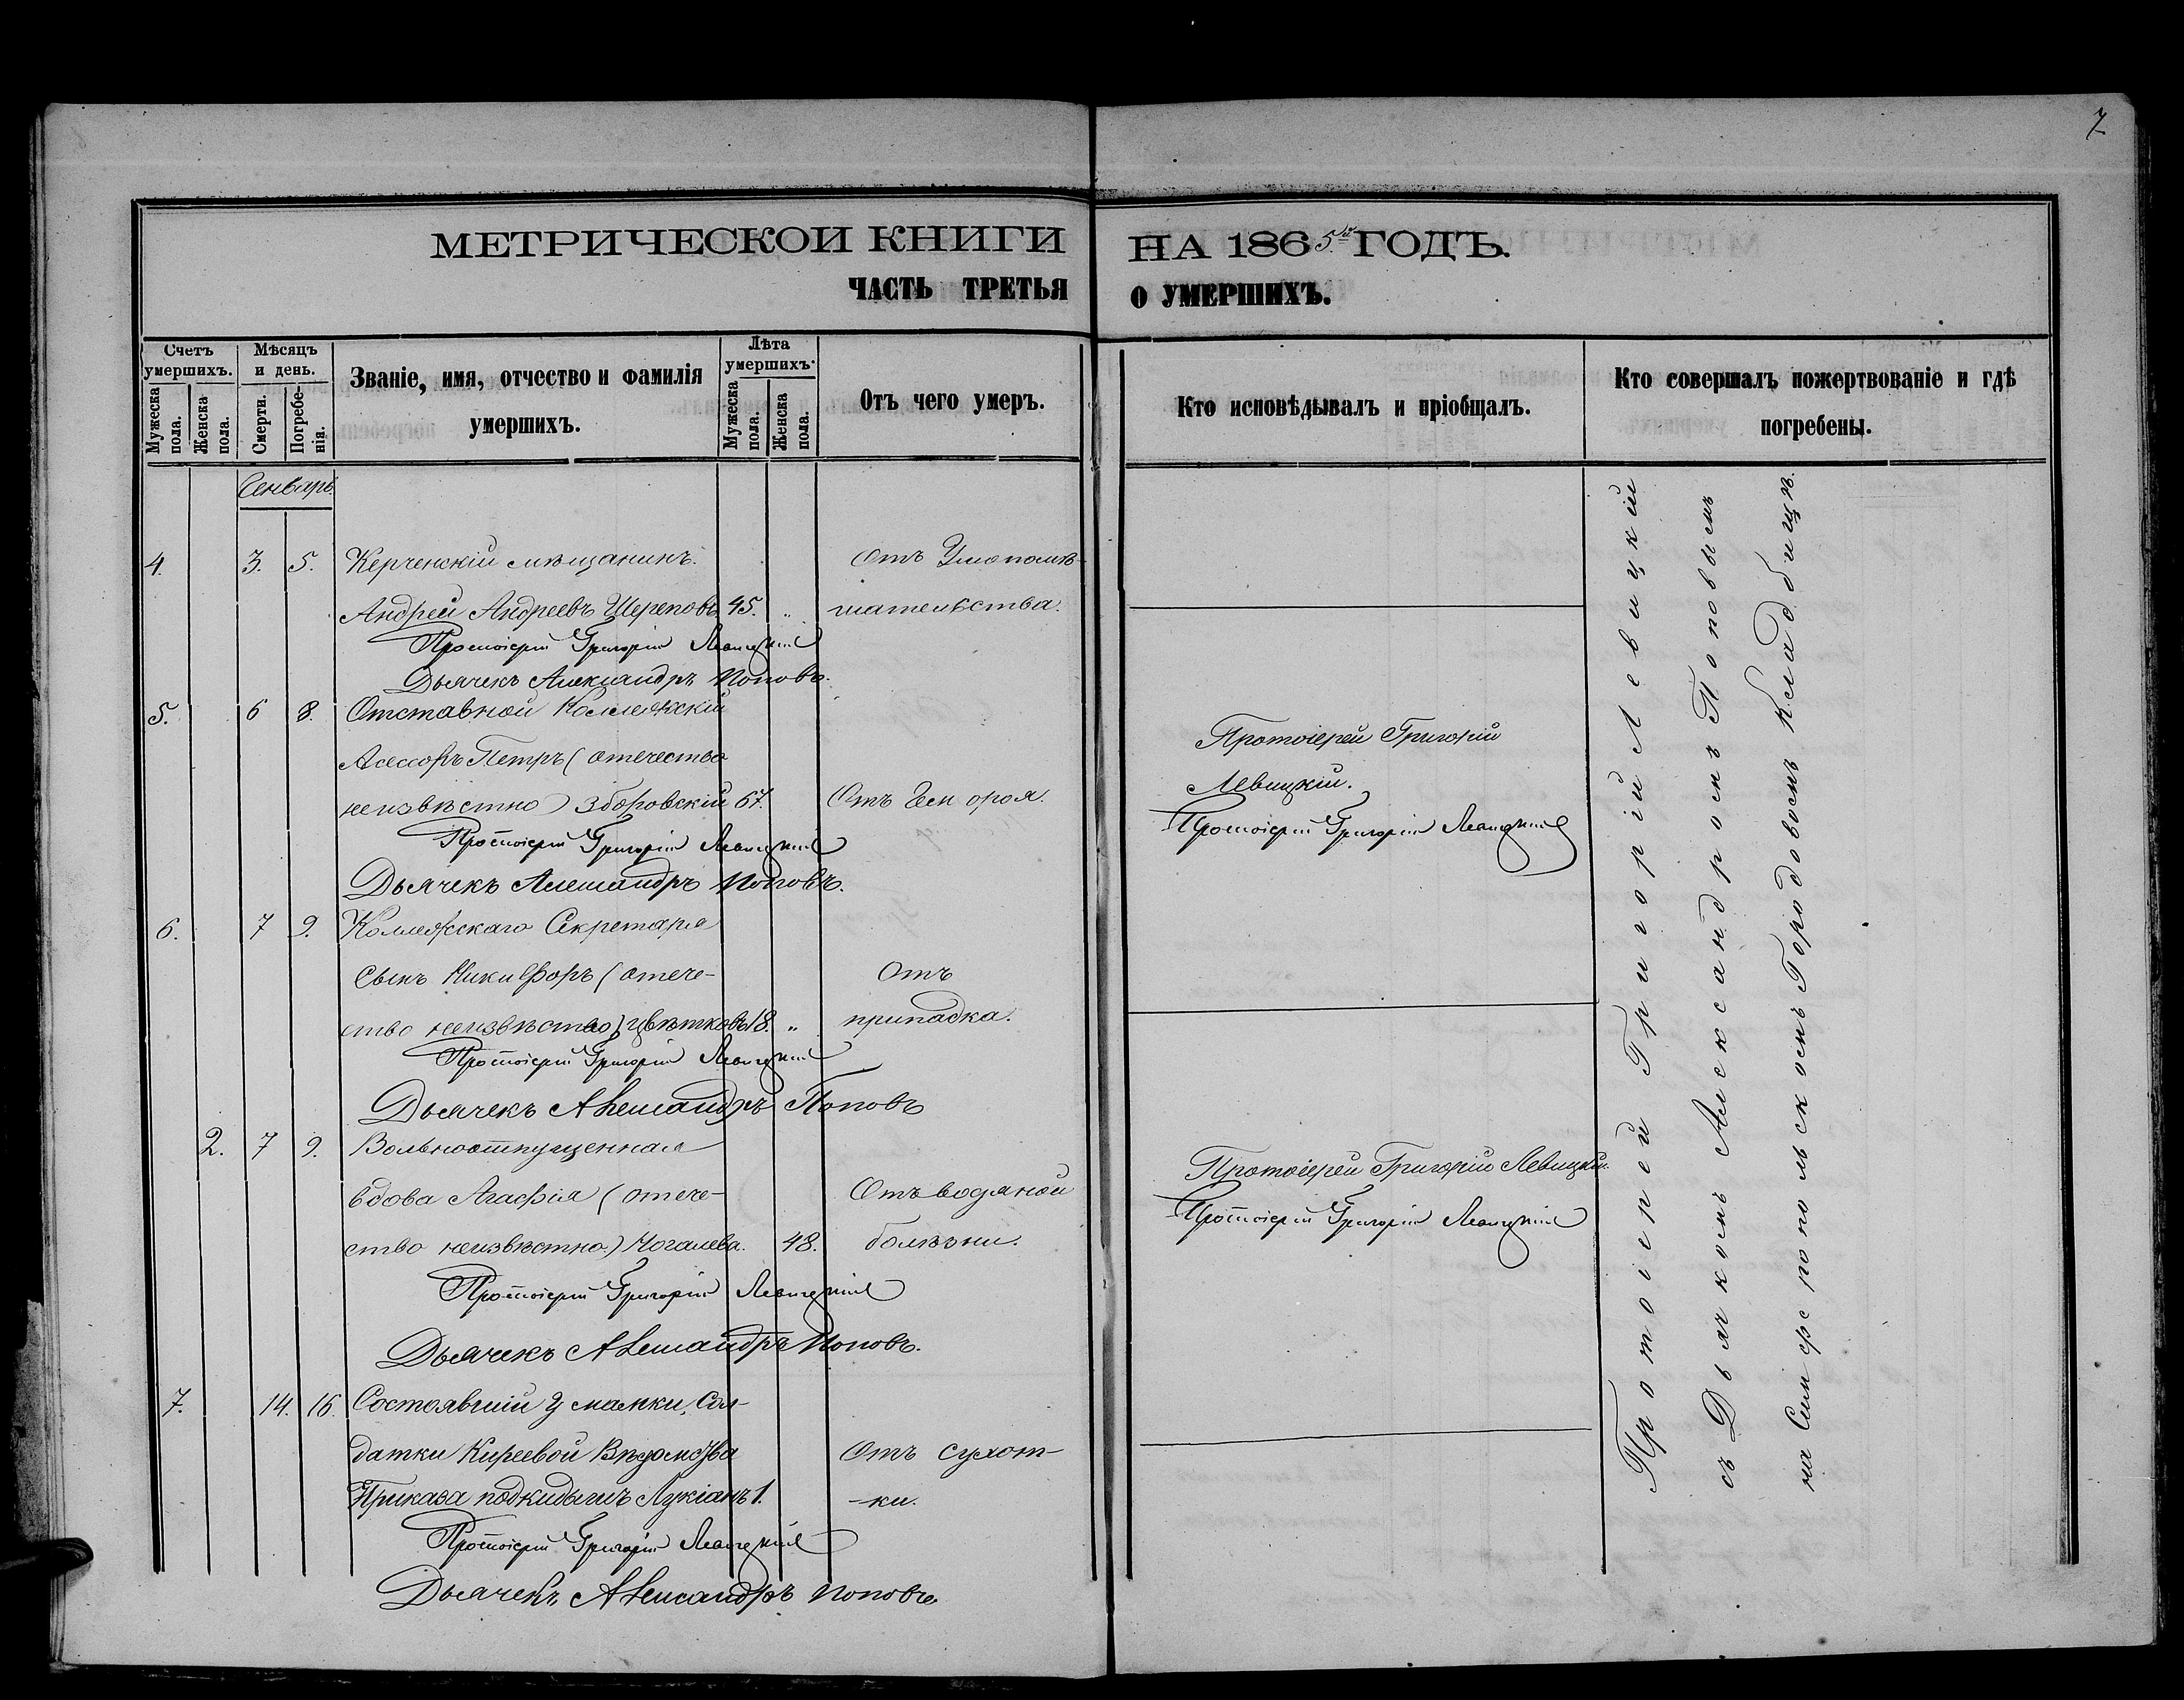 7
МЕТРИЧЕСКОИ КНИГИ НА 1865го ГОДЪ.
ЧАСТЬ ТРЕТЬЯ О УМЕРШИХЪ.
Счетъ умершихъ.
Мужеска пола.
Женска пола.
Мѣсяцъ и день.
Смерти.
Погребе-нія.
Званіе, имя, отчество и фамилія
умершихъ.
Лѣта умершихъ.
Мужеска пола.
Женска пола.
Отъ чего умеръ.
Кто исповѣдывалъ и пріобщалъ.
Кто совершалъ пожертвованіе и гдѣ
погребены.
Генварь.
4. 3. 5. Керченскій мѣщанинъ. Отъ Умопомѣ-
Андрей Андреевъ Щереповъ 45. " шательства.
Протоіерей Григорій Левицкій
Дьячекъ Александръ Поповъ.
5. 6 8. Отставной Коллежскій
Асессоръ Петръ (отечество
неизвѣстно) Зборовскій 67. Отъ Гем ороя.
Протоіерей Григорій Левицкій
Дьячекъ Александръ Поповъ.
6. 7 9. Коллежскаго Секретаря
Сынъ Никифоръ (отече- Отъ
ство неизвѣстно) Цвѣтковъ 18. " припадка.
Протоіерей Григорій Левицкій
Дьячекъ Александръ Поповъ
2. 7 9. Вольноотпущенная
вдова Агафія (отече- Отъ водяной
ство неизвѣстно.) Чогалева. 48. болѣзни.
Протоіерей Григорій Левицкій
Дьячекъ Александръ Поповъ.
7. 14. 16. Состоявшій у мамки, Сол-
датки Киреевой Вѣдомства Отъ сухот-
Приказа подкидышъ Лукіанъ 1. -ки.
Протоіерей Григорій Левицкій
Дьячекъ Александръ Поповъ
Протоіерей Григорій
Левицкій.
Протоіерей Григорій Левицкій
Протоіерей Григорій Левицкій.
Протоіерей Григорій Левицкій
Протоіерей Григорій Левицкій
съ Дьячкомъ Александромъ Поповымъ
на Симферопольскомъ Городовомъ Кладбищѣ.